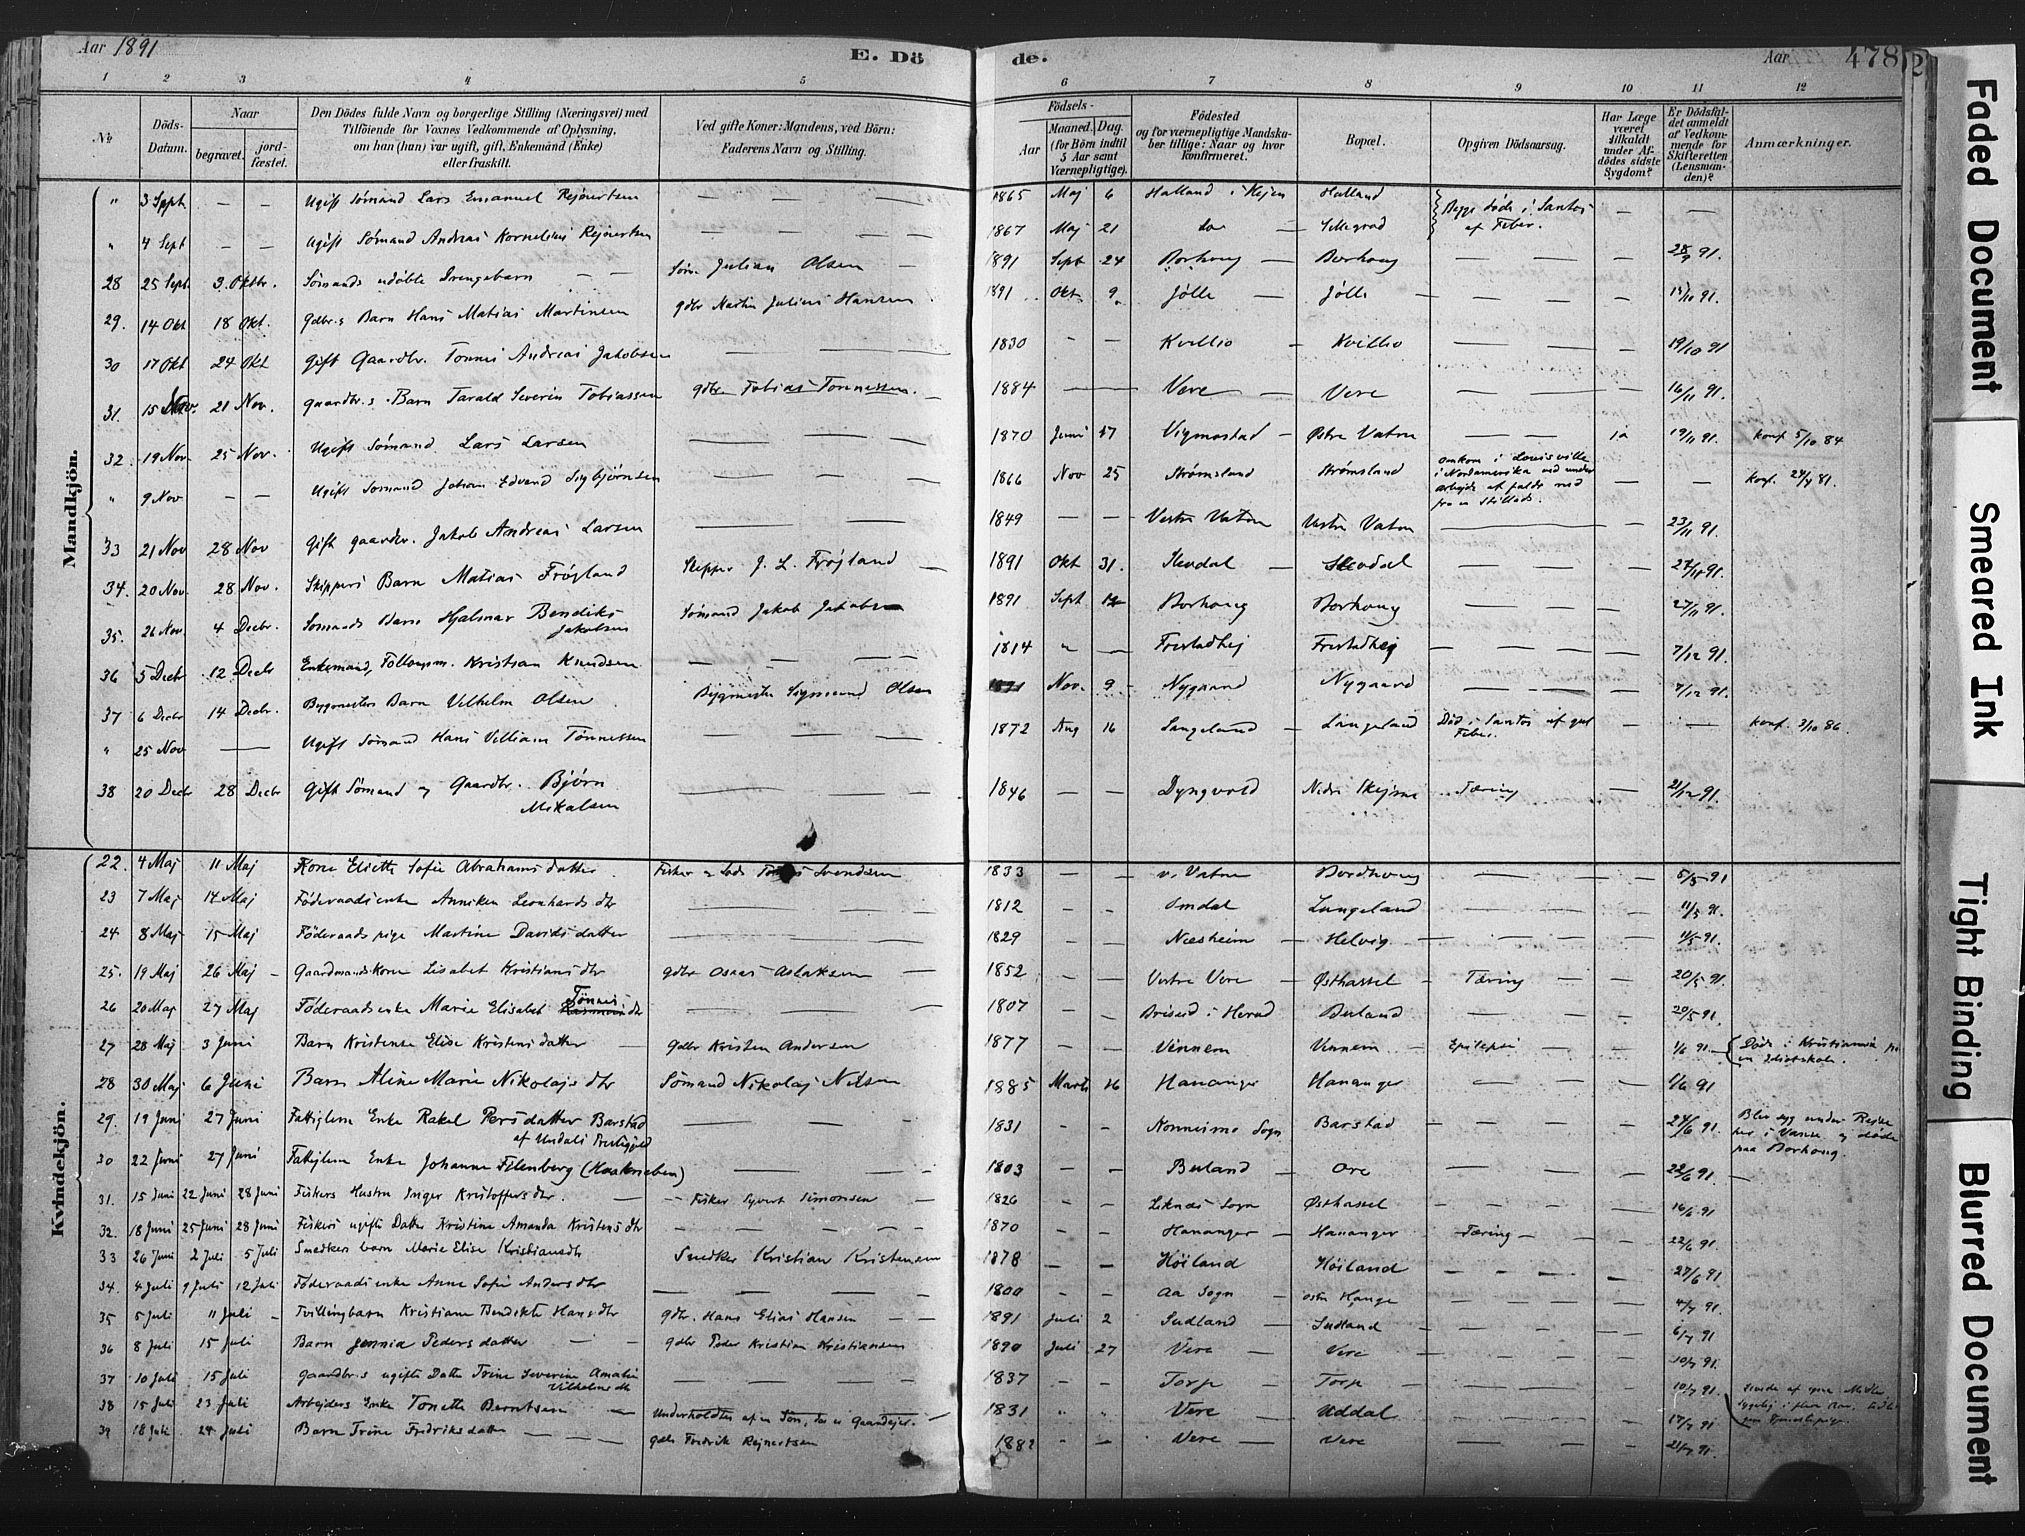 Aar 1891 E. Dö de. Aar 478
1 2 3 4 5 6 7 8 9 10 11 12
No. Döds-Datum. Naar begravet. jord-fæstet. Den Dödes fulde Navn og borgerlige Stilling (Næringsvei) med Tilföiende for Voxnes Vedkommende af Oplysning, om han (hun) var ugift, gift, Enkemand (Enke) eller fraskilt. Ved gifte Koner: Mandens, ved Börn: Faderens Navn og Stilling. Födsels- Aar Maaned. Dag. (for Börn indtil 5 Aar samt Værnepligtige). Födested og for værnepligtige Mandskaber tillige: Naar og hvor konfirmeret. Bopæl. Opgiven Dödsaarsag. Har Læge været tilkaldt under Afdödes sidste Sygdom? Er Dödsfaldet anmeldt af Vedkommende for Skifteretten (Lensmanden)? Anmærkninger.
Mandkjön.
" 3 Sept. — — Ugift Sømand Lars Emanuel Rejnertsen — — — 1865 Maj 6 Halland i Hejen Halland Begge døde i Santos af Feber. — —
" 4 Sept — — Ugift Sømand Andreas Kornelius Rejnertsen — — — 1867 Maj 21 do —
28 25 Sept. 3. Oktbr. Sømands udøbte Drengebarn — — Søm. Julian Olsen — 1891 Sept 24 Borhoug — Borhoug — — — 28/9 91.
29. 14 Okt 18 Okt. Gdbr.s Barn Hans Matias Martinsen gdbr Martin Julius Hansen 1891 Okt 9 Jølle — Jølle — — — 15/10 91.
30 17 Okt 24 Okt Gift Gaardbr. Tønnes Andreas Jakobsen — — — 1830 - - Kvillio — Kvillio — — — 19/10 91
31. 15 Nov. 21 Nov. Gaardbr.s Barn Tarald Severin Tobiassen gdbr Tobias Tønnessen. — 1884 — Vere — Vere — — — 16/11 91.
32. 19 Nov. 25 Nov. Ugift Sømand Lars Larsen — — — 1870 Juni 17 Vigmostad — Østre Vatne — — ja 19/11 91. konf. 5/10 84
" 9 Nov — — Ugift Sømand Johan Edvard Sigbjørnsen — — — 1866 Nov 25 Strømsland Strømsland omkom i Louisville i Nordamerika ved under arbejde at falde ned fra et Stillads. — — konf.
33 21 Nov 28 Nov Gift gaardbr. Jakob Andreas Larsen — — — 1849 — — Vestre Vatne Vestre Vatne — — 23/11 91.
34. 20 Nov 28 Nov. Skippers Barn Matias Frøjland Skipper J. L. Frøjland — 1891 Okt 31. — — —
35. 26 Nov. 4 Decbr. Sømands Barn Hjalmar Bendiks Jakobsen Sømand Jakob Jakobsen 1891 Sept Borhoug Borhoug — — — 27/11 91.
36 5 Decbr 12 Decbr Enkemand, Kristian Knudsen — — — 1814 " — — — — 7/12 91.
37 6 Decbr 14 Decbr. Bygmesters Barn Vilhelm Olsen Bygmester Sigmund Olsen Nov. 9 Nygaard Nygaard — — — 7/12 91.
" 25 Nov — Ugift Sømand Hans Villiam Tønnessen — — — 1872 Aug 16 Langeland — Langeland Död i Santos af gul Feber. — — konf. 3/10 86.
38 20 Decbr 28 Decbr Gift Sømand og Gaardbr. Bjørn Mikalsen — — — 1846 — — Dyngvold Nedre Skejme Tæring — — 21/12 91.
Kvindekjön.
22. 4 Maj 11 Maj Kone Eliette Sofie Abrahamsdatter. Fisker Svendsen 1833 — — v. Vatne Bordhoug — — — 5/5 91
23 7 Maj 14 Maj Føderaadsenke Anniken Leonhardsdtr — — — 1812 - - Omdal Langeland — — — 11/5 91.
24 8 Maj 15 Maj Føderaadspige Martine Davidsdatter — — — 1829 — — Næsheim — Helvig — — — 11/5 91.
25. 19 Maj 26 Maj — Gaardmandskone Lisabet Kristiansdtr gdbr Osaas Aslaksen — 1852 - - Vestre Vere — Østhassel — Tæring — — 20/5 91.
26 20 Maj 27 Maj Føderaadsenke Marie Elisabet Tønnesdtr — — — 1807 - - Briseid i Herad Buland — — — 20/5 91.
27 28 Maj 3 Juni Barn Kristense Elise Kristensdatter — Gdbr Kristen Andersen 1877 - - Vennem — Vennem — Epilepsi — — 1/6 91 — Døde i Kristiansia paa en Idiotskole.
28 30 Maj 6 Juni Barn Aline Marie Nikolajsdtr Sømand Nikolaj Nilsen 1885 Marts 16 Hananger — Hananger — — — 1/6 91
29. 19 Juni 27 Juni Fattiglem Enke Rakel Persdatter Barstad af Undals Præstegjeld — — — 1831 - - Nonneime Sogn Barstad — — — 24/6 91. Blev syg under Rejse her i Vanse og døde paa Borhoug.
30 22 Juni 27 Juni Fattiglem Enke Johanne Felenberg — — 1803 — — Buland — Ore — — — 22/6 91. —
31. 15 Juni 22 Juni 28 Juni Fiskers Hustru Inger Kristoffersdtr. — Fisker Syvert Simonsen — 1826 — — Liknes Sogn Østhassel — — — 16/6 91
32. 18 Juni 25 Juni 28 Juni Fiskers ugifte Datter Kristine Amanda Kristensdtr — — — 1870 — — Hananger — Hananger — Tæring — — 22/6 91.
33 26 Juni 2 Juli 5 Juli Snedkers barn Marie Elise Kristiansdtr Snedker Kristian Kristensen 1878 — — Höiland Höiland — — — 27/6 91
34. 4 Juli 9 Juli 12 Juli Føderaadsenke Anne Sofie Andersdtr — — — 1800 - - Aa Sogn — østre Hauge — — — 4/7 91.
35 5 Juli 11 Juli — Tvillingbarn Kristiane Bendikte Hansdtr gdbr. Hans Elias Hansen — 1891 Juli 2 Sudland — Sudland — — — 6/7 91
36 8 Juli 15 Juli Barn Jennia Pedersdatter — — gdbr Peder Kristian Kristiansen 1890 Juli 27 Vere — Vere — — — 10/7 91.
37 10 Juli 15 Juli Gaardbr.s ugifte Datter Trine Severine Amalie Vilhelmsdtr — — — 1837 — — Torp — Torp — — — 10/7 91.
38 15 Juli 23 Juli Arbejders Enke Tonette Berntsen — Underholdtes af en Søn, der er Gaardejer. — 1831 " " Vere — Uddal — — — 17/7 91
39 18 Juli 24 Juli Barn Trine Fredriksdatter — — gdbr Fredrik Rejnertsen 1882 - - Vere — Vere — — — 21/7 91.
Faded Document
Smeared Ink
Tight Binding
Blurred Document